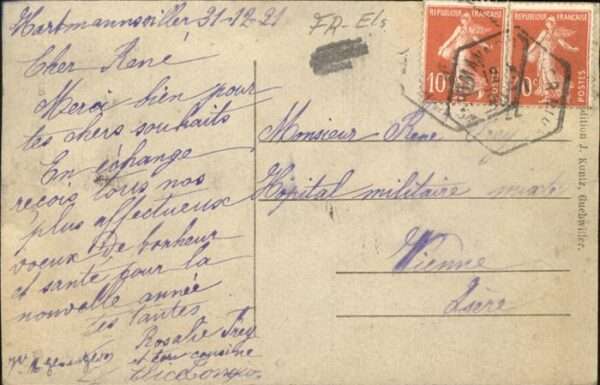 Hartmannswiller 31-12-21
FR-Els
Cher René
Merci bien pour
tes chers souhaits
En échange
reçois tous nos
plus affectueux
voeux de bonheur
et santé pour la
nouvelle année
tes tantes
Rosalie
et ton cousine
Monsieur Rene
Hôpital militaire mixte
Vienne
Isère
REPUBLIQUE FRANÇAISE
10
REPUBLIQUE FRANÇAISE
POSTES
Edition J. Kuntz, Guebwiller.